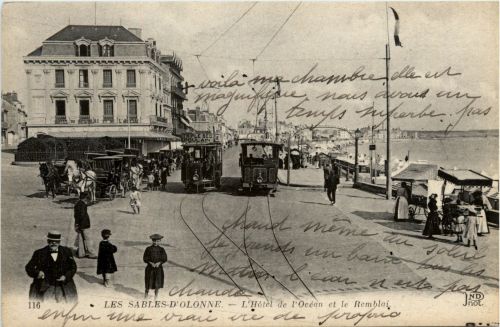 voilà ma chambre elle est
magnifique nous avons un
temps superbe, pas
chaud même
grands bains
au soleil
mais l'eau n'est pas
116 LES SABLES-D'OLONNE. — L'Hôtel de l'Océan et le Remblai
ND
Phot.
enfin une vraie vie de